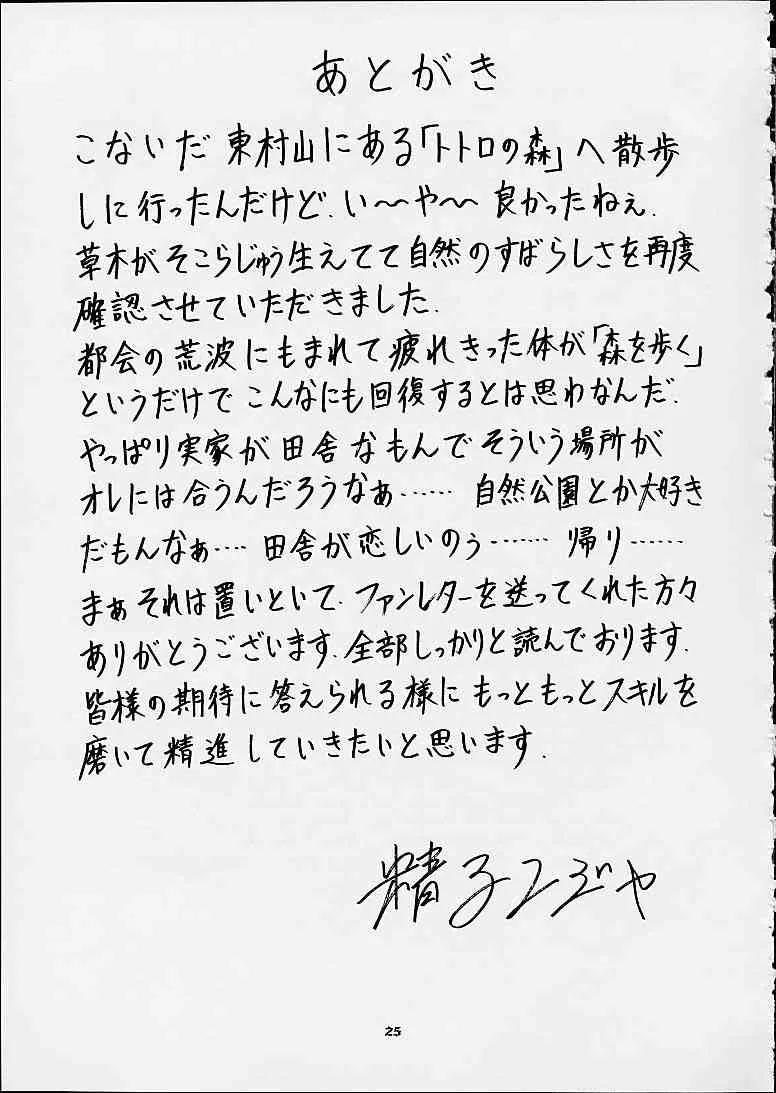 あとがき
こないだ東村山にある「トトロの森」へ散歩
しに行ったんだけど、い〜や〜良かったねぇ.
草木がそこらじゅう生えてて自然のすばらしさを再度
確認させていただきました.
都会の荒波にもまれて疲れきった体が「森を歩く」
というだけでこんなにも回復するとは思わなんだ.
やっぱり実家が田舎なもんでそういう場所が
オレには合うんだろうなぁ…… 自然公園とか大好き
だもんなぁ…. 田舎が恋しいのぅ…… 帰り……
まぁそれは置いといて、ファンレターを送ってくれた方々
ありがとうございます.全部しっかりと読んでおります.
皆様の期待に答えられる様にもっともっとスキルを
磨いて精進していきたいと思います.
25